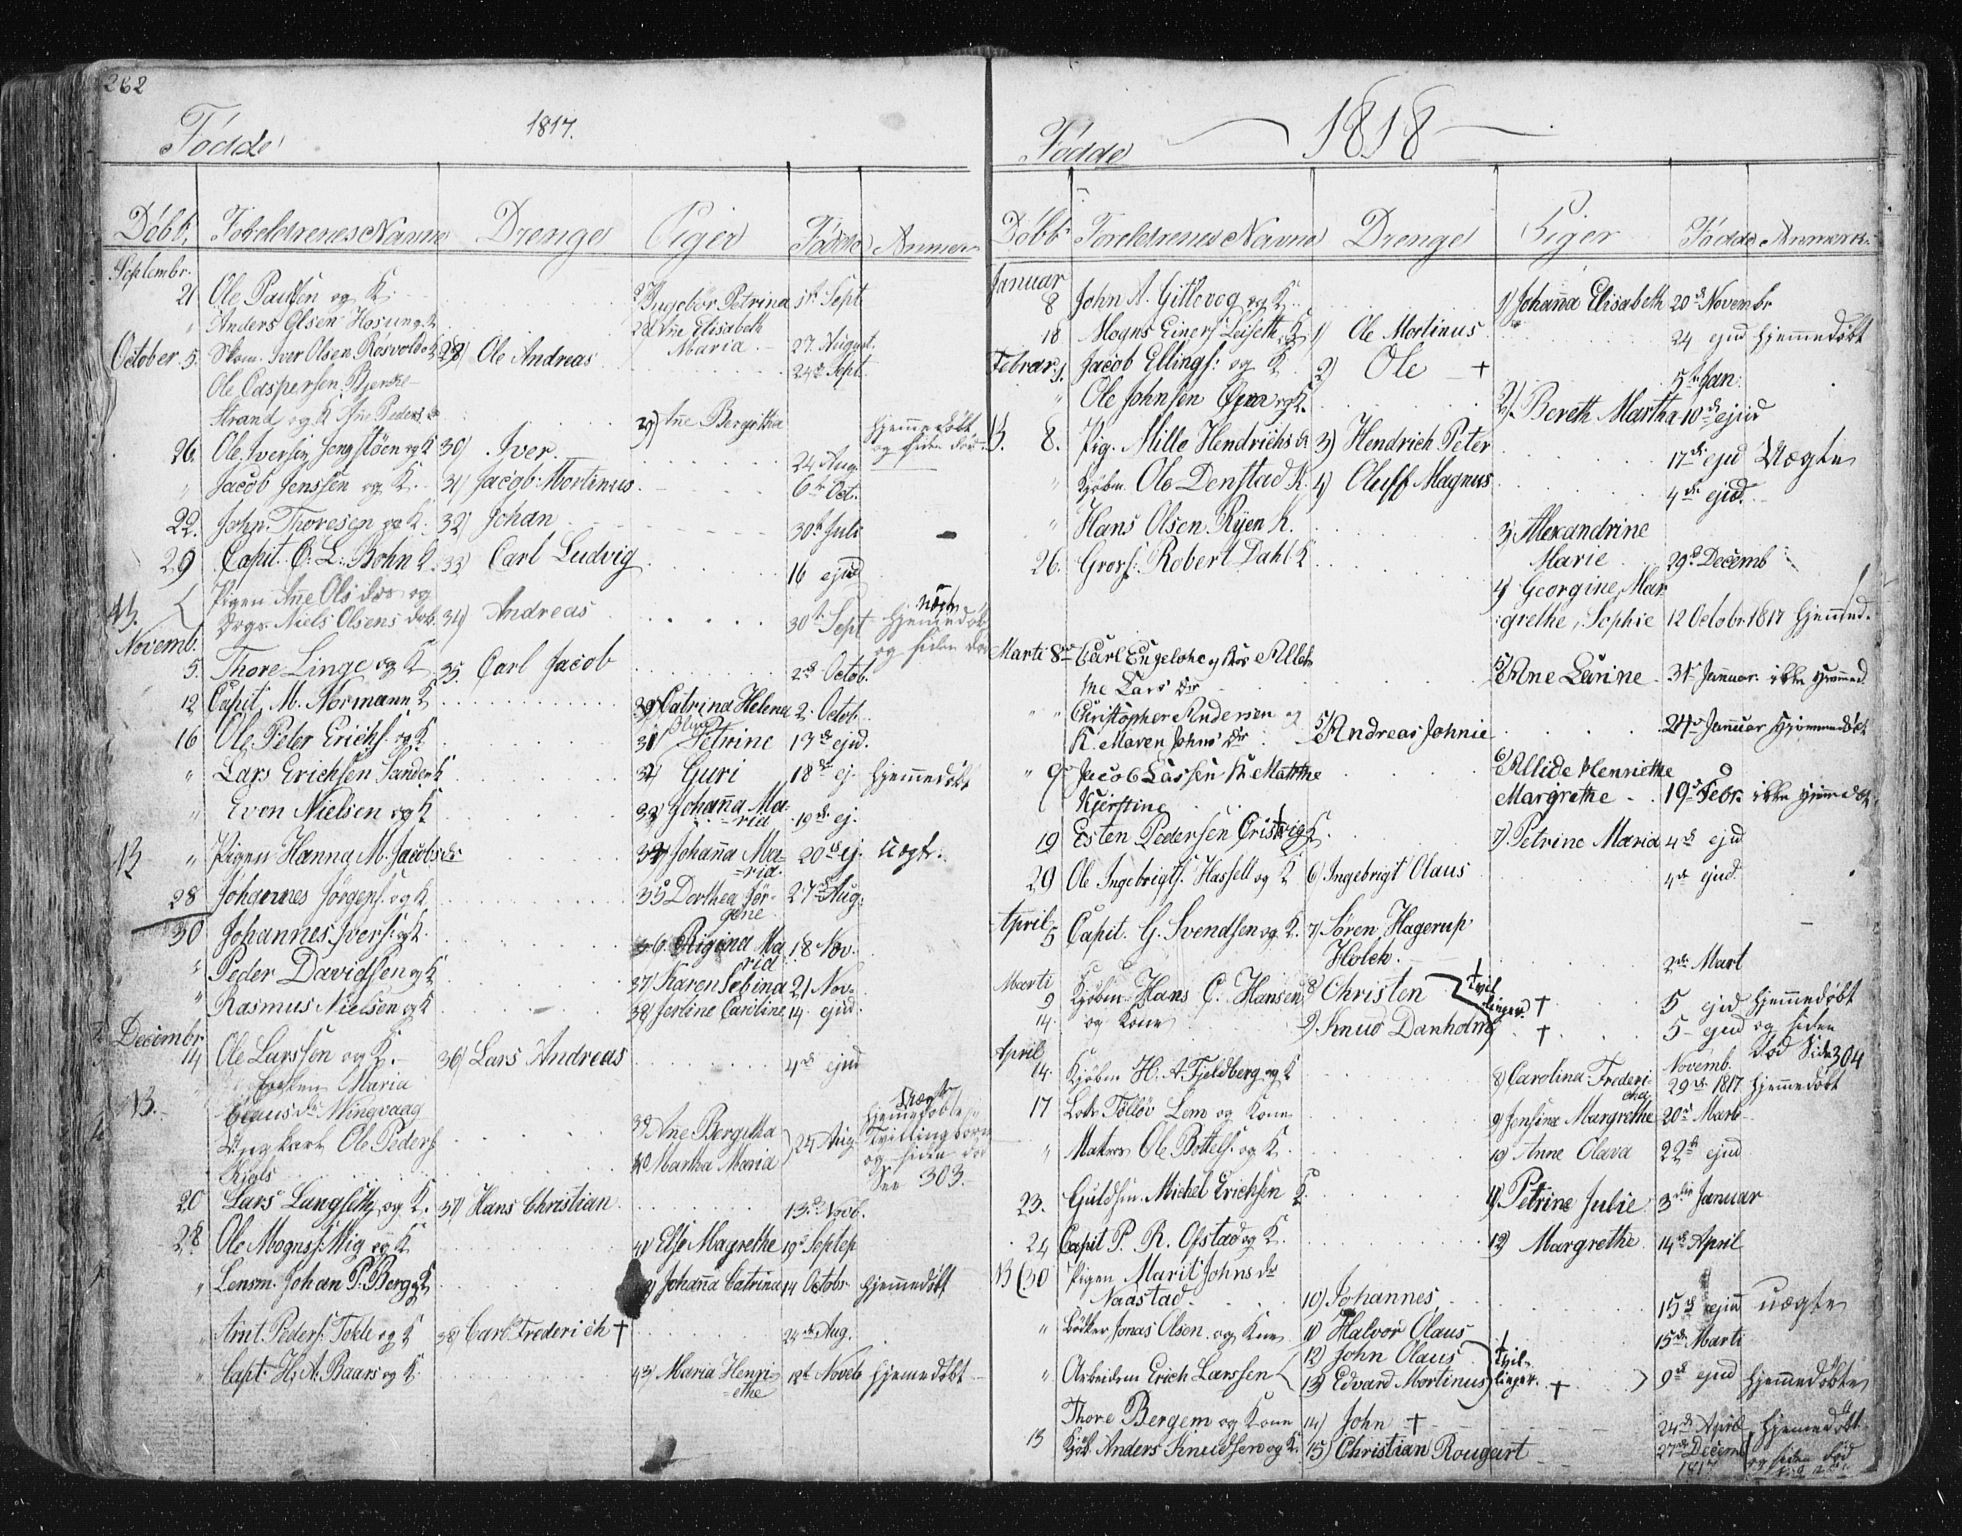 262
Fødde 1817.
Døbt. Foreldrenes Navne Drenge Piger Fødde Anmer.
Septembr.
21 Ole Paulsen og K. Ingebor Petrina 5te Sept
" Anders Olsen 28 Ane Elisabeth
Maria 27. August.
October 5. Skom. Iver Olsen Røsvold og K 28) Ole Andreas 24de Sept
Ole Caspersen Bjerke
Strand og K Ane Peders dr 29) Ane Bergitha hjemmedøbt
og siden død
26. Ole Iversen og K 30) Iver. 24 Aug.
" Jacob Jenssen og K. 31) Jacob Mortinus 6te Oct.
22. John Thoresen og K. 32) Johan 30te Juli
29 Capit. O. L. Bohn K 33) Carl Ludvig 16 ejud
Pigen Ane Ols dr og
NB. Niels Olsens 34) Andreas 30te Sept Uægte hjemmedøbt
og siden død
Novemb.
5. Thore Linge og K 35. Carl Jacob 2de Octob.
12 Capit. M. Normann K 30) Catrina Helena 2. Octob.
16 Ole Peter Erichs. og K 31) Oluf Petrine 13de ejud.
" Lars Erichsen Sande K 32) Guri 18de ej. hjemmedøbt
" Even Nielsen og K 33) Johanna Ma
ria 19de ej.
NB " Pigen Hanna M. Jacobs dr 34) Johanna Ma-
ria. 20de ej. Uægte.
28 Johannes Jørgens. og K 35 Dorthea Jør-
gine 27de Aug.
30 Johannes Ivers. og K. 36 Regina Ma
ria 18 Nov.
" Peder Davidsen og K 37) Karen Sebina 21 Nov.
" Rasmus Nielsen og K 38) Jerline Caroline 14 ejud.
Decembr
14 Ole Larssen og K. 36) Lars Andreas 4de ejud
NB. Maria
Claus dr Ningvaag
Ungkarl Ole Peders 39 Ane Bergitha 24 Aug. Uægte hjemmedøbte
Tvillingbørn
40 Martha Maria og siden død
See 303.
20 Lars Langseth og K. 37) Hans Christian 13de Novb.
28 Ole Mogns. Mig og K 41) Else Magrethe 19de Septep
" Lensm. Johan P. Borg og K 42) Johanna Catrina 14 Octobr hjemmedøbt
" Arnt Peders. Tekle og K 38) Carl Frederich † 24de Aug.
" Capt. H. A. Baars og K 43) Maria Henri-
ethe 12te Novbr hjemmedøbt
Fødde 1818
Døbt Foreldrenes Navne Drenge Piger Fødde Anmerk.
Januar
8 John A. Gittevog og K. 1) Johanna Elisabeth 20de Novembr
18 Mogns Einers. Leiseth K 1) Ole Mortinus 24 ejud hjemmedøbt
Februar 1. Jacob Ellings: og K 2) Ole † 5te Jan:
" Ole Johnsen Øyen og K. 2) Bereth Martha 10de ejud
NB. 8. Pig. Mille Hendrichs dr 3) Hendrich Peter 17de ejud Uægte
" Kjøbm. Ole Denstad K. 4) Oluff Magnus 4de ejud.
" Hans Olsen Ryen K. 3) Alexandrine
Marie 29de Decemb
26. Gross: Robert Dahl K 4) Georgine, Mar
grethe, Sophie 12 Octobr 1817 hjemmed.
Marti 8de Carl Engelohe og Kone Alleth
ine Lars dr 5) Ane Laurine 31te Januar: ikke hjemmed.
" " Christopher Andersen og
K. Maren Johns dr 5) Andreas Johnie 24de Januar hjemmedøbt
" 9de Jacob Lassen K Mathhe
Kjerstine 6) Allide Henriethe
Margrethe 19de Febr. ikke hjemdøbt
19 Esten Pedersen Cristvig K. 7) Petrine Maria 4de ejud
29 Ole Ingebrigts. Hassell og K 6 Ingebrigt Olaus 4de ejud.
April 5 Capit. G. Svendsen og K. 7) Søren Hagerup
Holck. 2de Mart
Marti
9 Kjøbm. Hans C. Hansen 8) Christen Tvil- † 5 ejud hjemmedøbt
14. og Kone 9) Knud Danholm linger † 5 ejud og siden
død Side 304
April
14. Kjøbm H. A Fjeldberg og K 8) Carolina Frederi-
cha Novemb. 29de 1817 hjemmedøbt
17 Lods Tølløv Lem og Kone 9) Jensine Margrethe 20de Marti
" Matros Ole Bottels. og K. 10) Anne Olava 22de ejud
23. Guldsm. Michel Erichsen K. 11) Petrine Julie 3die Januar
24 Capit P. R. Ofstad og K. 12) Margrethe 14de April
NB 30 Pigen Marit Johns dr
Naastad 10) Johannes 15de ejud uægte
" Bødker Jonas Olsen og Kone 11) Halvor Olaus 15de Marti
" Arbeidsm Erich Larssen 12) John Olaus Tvil-
13) Edvard Mortinus linger. † 9de ejud hjemmedøbte
Thore Bergem og Kone 14) John † 24de April hjemmedøbt
13 Kjøb. Anders Knudsen og K. 15) Christian Rougert 27de Decemb
1817 og siden død